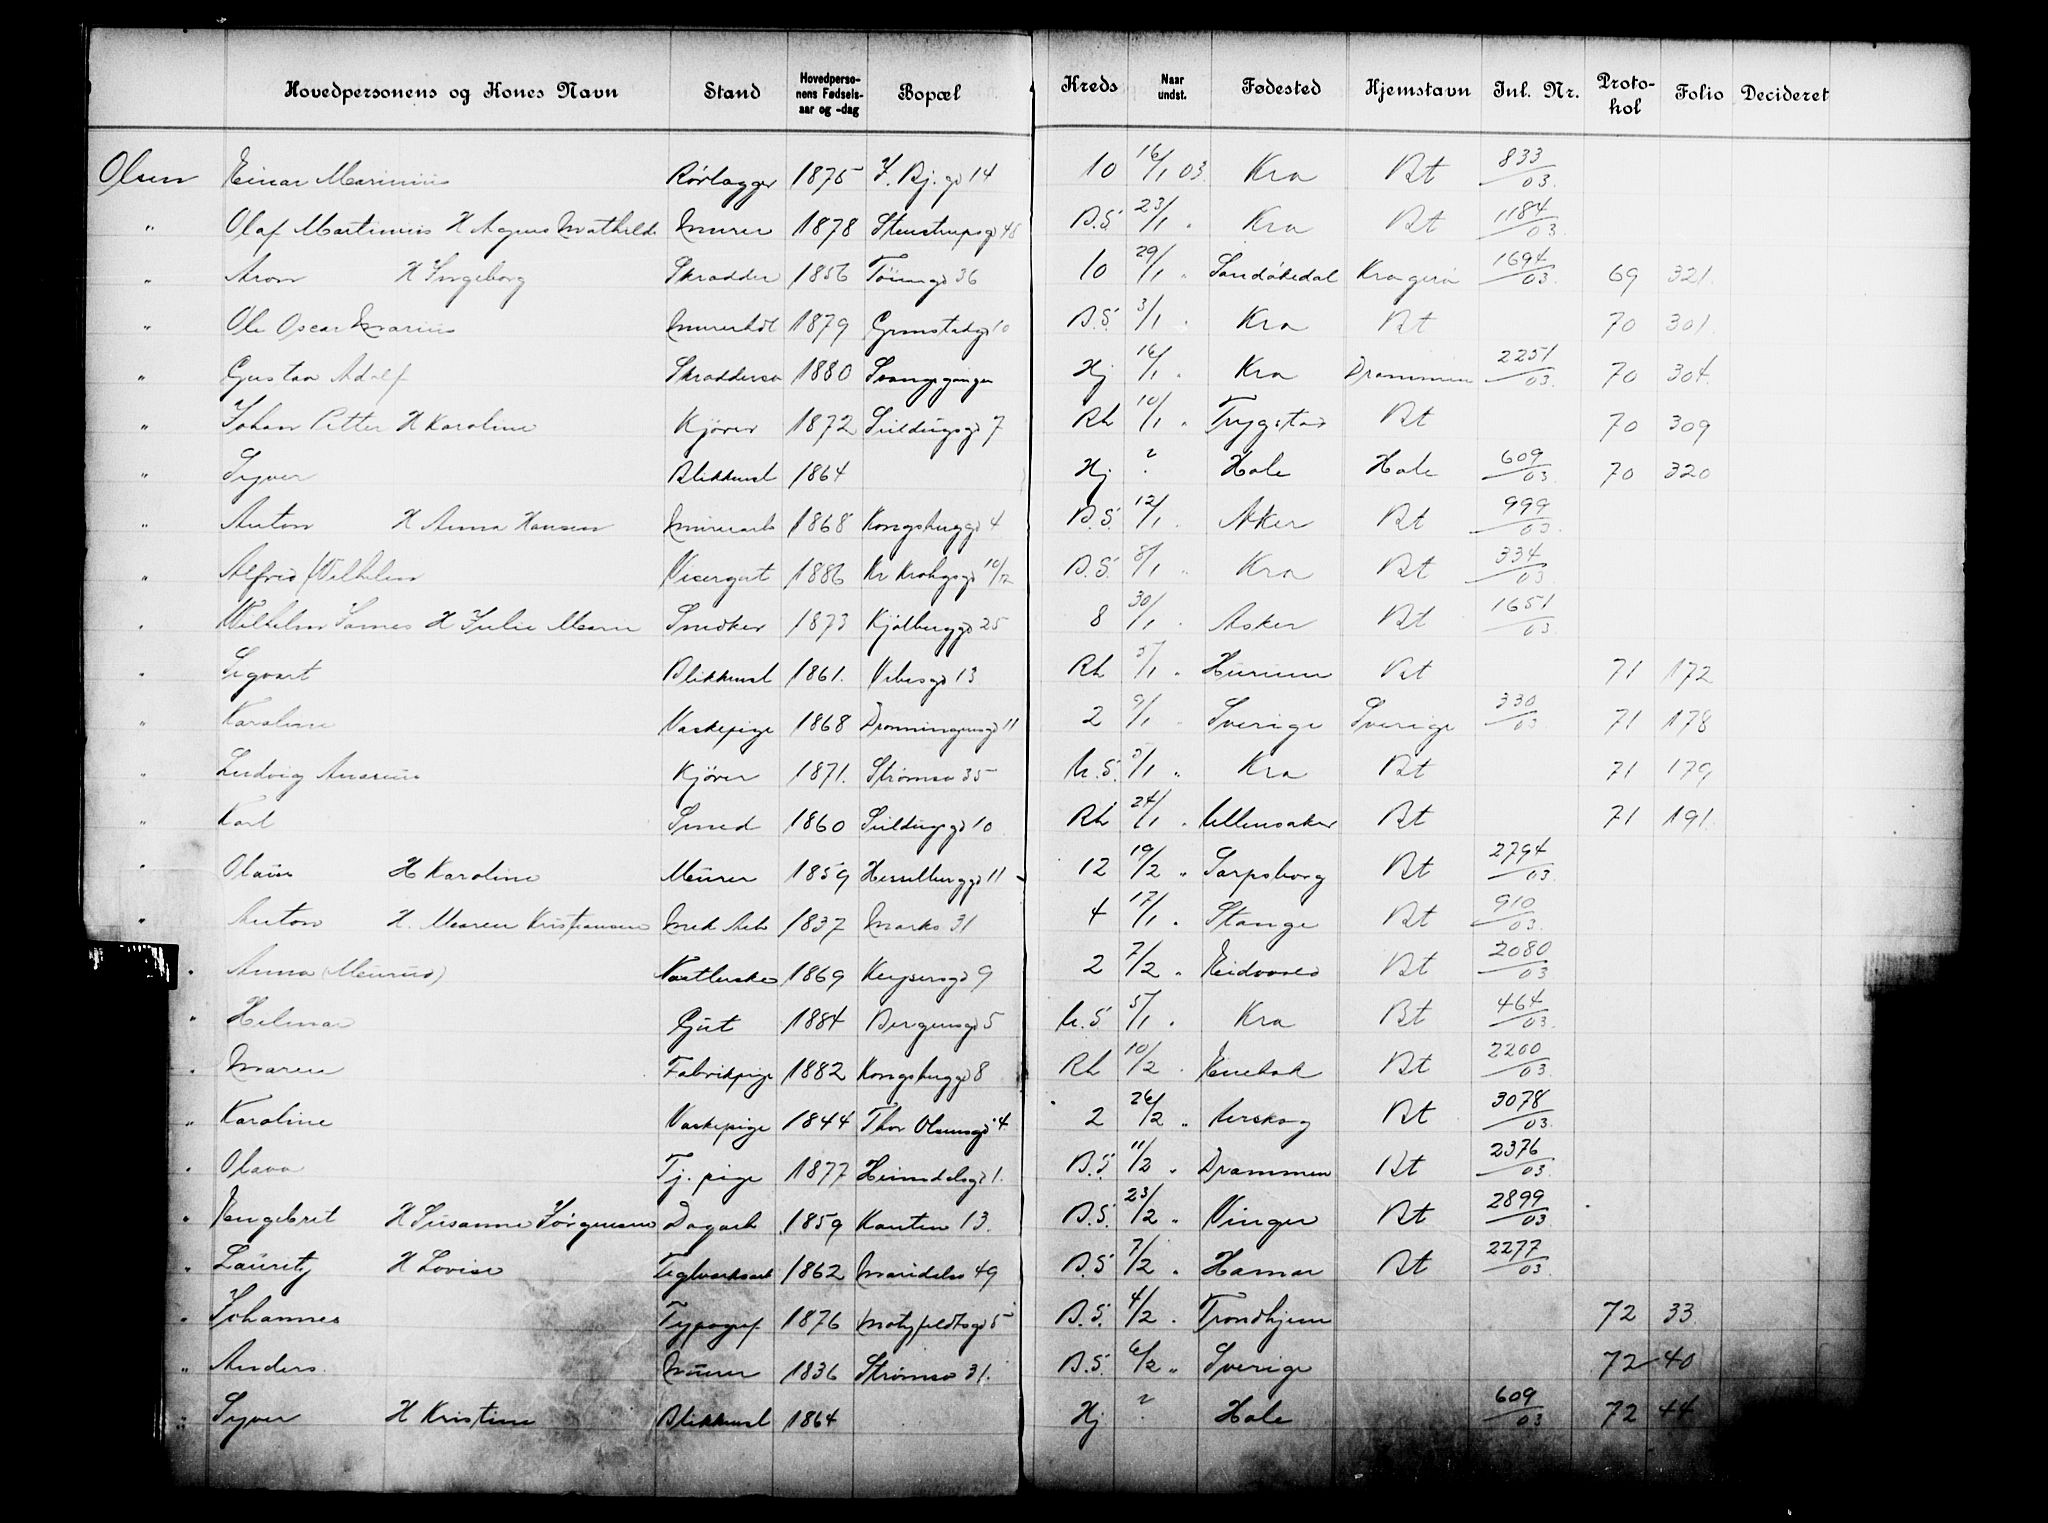 Hovedpersonens og Kones Navn Stand Hovedpersonens Fødselsaar og -dag Bopæl Kreds Naar undst. Fødested Hjemstavn Jnl. Nr. Protokol Folio Decideret
Olsen Einar Marinius Rørlægger 1875 J. Bj. gd 14 10 16/1 03. Kra Bt 833/03.
" Olaf Martinius H Agnes Mathilde Murer 1878 Stenstrupsgd 48 B.S. 23/1 " Kra Bt 1184/03.
" Aron H Ingeborg Skrædder 1856 Tøiengd 36 10 29/1 " Sandökedal Kragerø 1694/03. 69 321.
" Ole Oscar Marius 1879 Grimstadgd 10 B.S. 3/1 " Kra Bt 70 301.
" Gustav Adolf Skræddersv 1880 Svangegangen Hj 16/1 " Kra Drammen 2251/03. 70 304.
" Johan Petter H Karoline Kjører 1872 7 Rh 10/1 " Trygstad Bt 70 309
" Syver Blikkensl 1864 Hj ? Hole Hole 609/03. 70 320
" Anton H Anna Hansen Murerarb 1868 Kongsberggd 4 B.S. 12/1 " Aker Bt 999/03.
" Alfred Wilhelm Visergut 1886 Kr Krohgsgd 10/12 B.S. 8/1 " Kra Bt 334/03.
" Wilhelm James H Julie Marie Snedker 1873 Kjølberggd 25 8 30/1 " Asker Bt 1651/03.
" Sigvart Blikkensl 1861. Vibesgd 13 Rh 5/1 " Hurum Bt 71 172
" Karoline Vaskepige 1868 Dronningensgd 11 2 9/1 " Sverige Sverige 330/03 71 178
" Ludvig Kjører 1871. Strømsv 35 U.S. 5/1 " Kra Bt 71 179
" Karl Smed 1860 10 Rh 24/1 " Ullensaker Bt 71 191.
" Olaus H Karoline Murer 1859 Hesselberggd 11 12 19/2 " Sarpsborg Bt 2794/03.
" Anton H. Maren Kristiansen Mek Arb 1837 Markv 31 4 17/1 " Stange Bt 910/03.
" Anna (Maurud) 1869 Keysersgd 9 2 7/2 " Eidsvold Bt 2080/03
" Hilmar Gut 1884 Bergensgd 5 U.S 5/1 " Kra Bt 464/03.
" Maren Fabrikpige 1882 Kongsberggd 8 Rh 10/2 " Enebak Bt 2200/03.
" Karoline Vaskepige 1844 Thor Olsensgd 4 2 26/2 " Urskog Bt 3078/03.
" Olava Tj. pige 1877 Heimdalsgd 1. B.S. 11/2 " Drammen Bt 2376/03
" Engebret H Susanne Jørgensen Dagarb 1859 Kanten 13. B.S. 23/2 " Vinger Bt 2899/03
" Lauritz H Lovise Teglverksarb 1862 Maridalsv 49 B.S 7/2 " Hamar Bt 2277/03.
" Johannes Typograf 1876 Motzfeldtsgd 5 B.S. 4/2 " Trondhjem 72 33.
" Anders. Murer 1836 Strømsv 31. B.S. 6/2 " Sverige 72 40
" Syver H Kristine Blikkensl 1864 Hj ? Hole 609/03 72 44